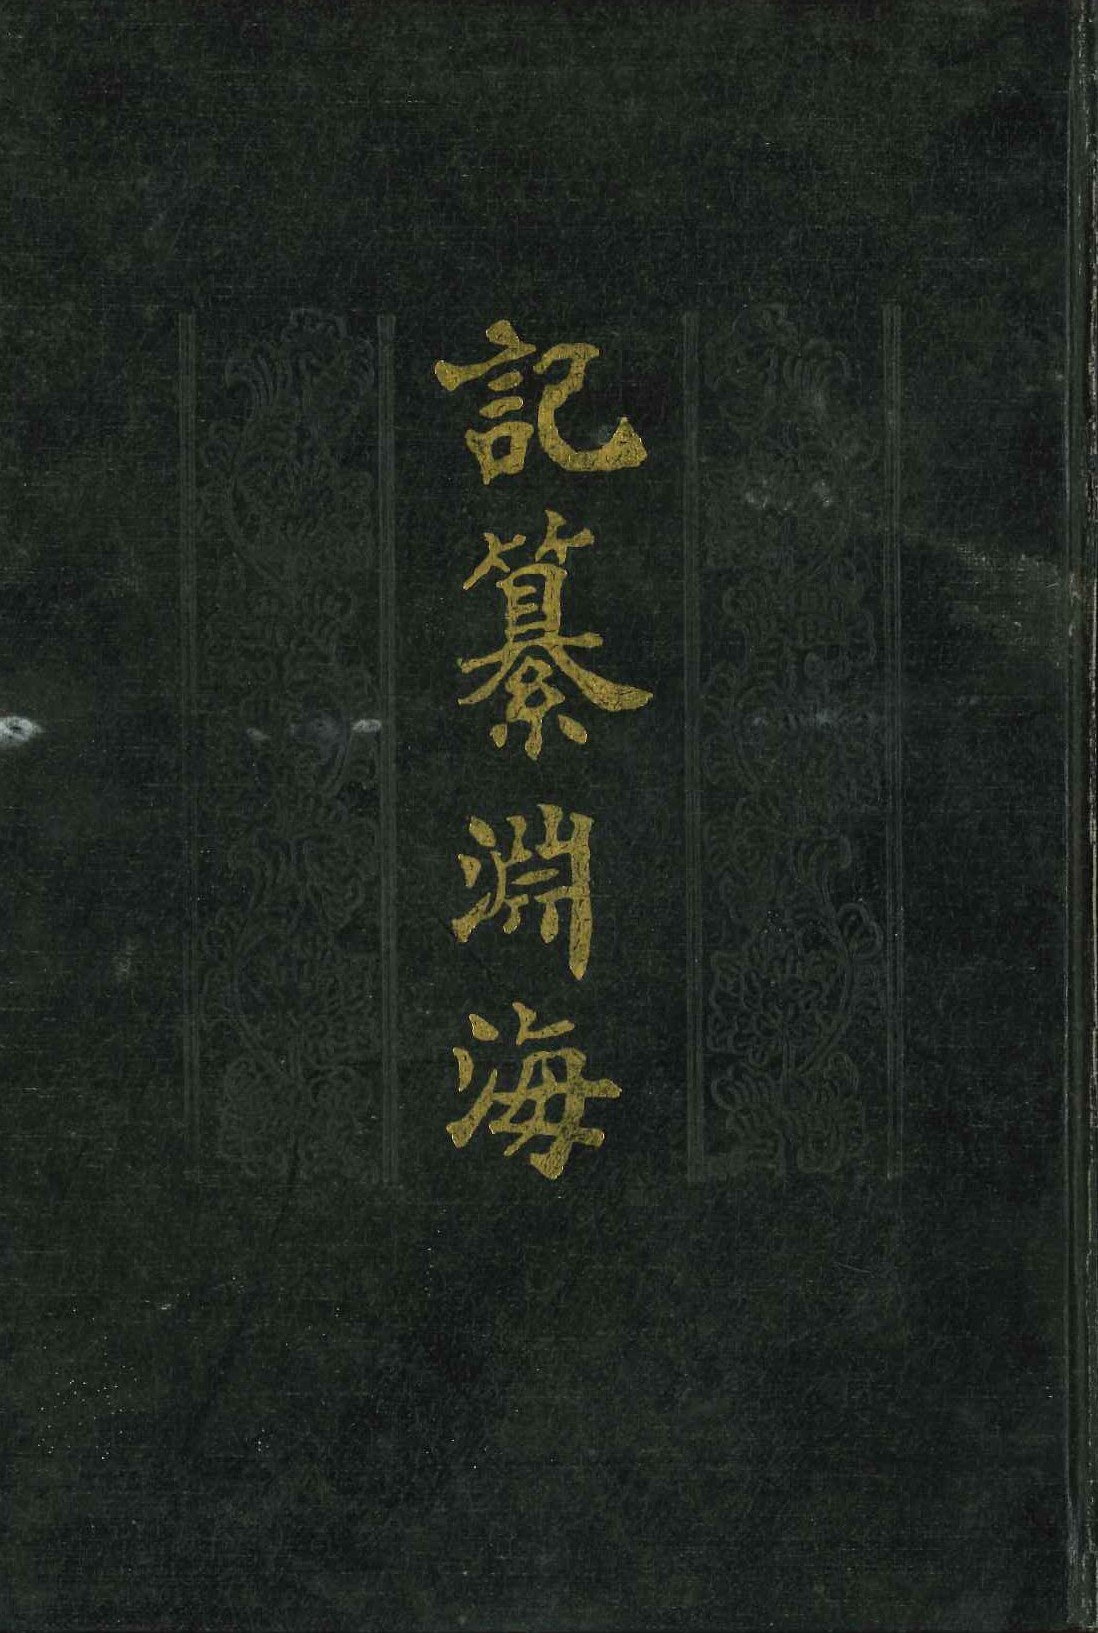 記纂淵海